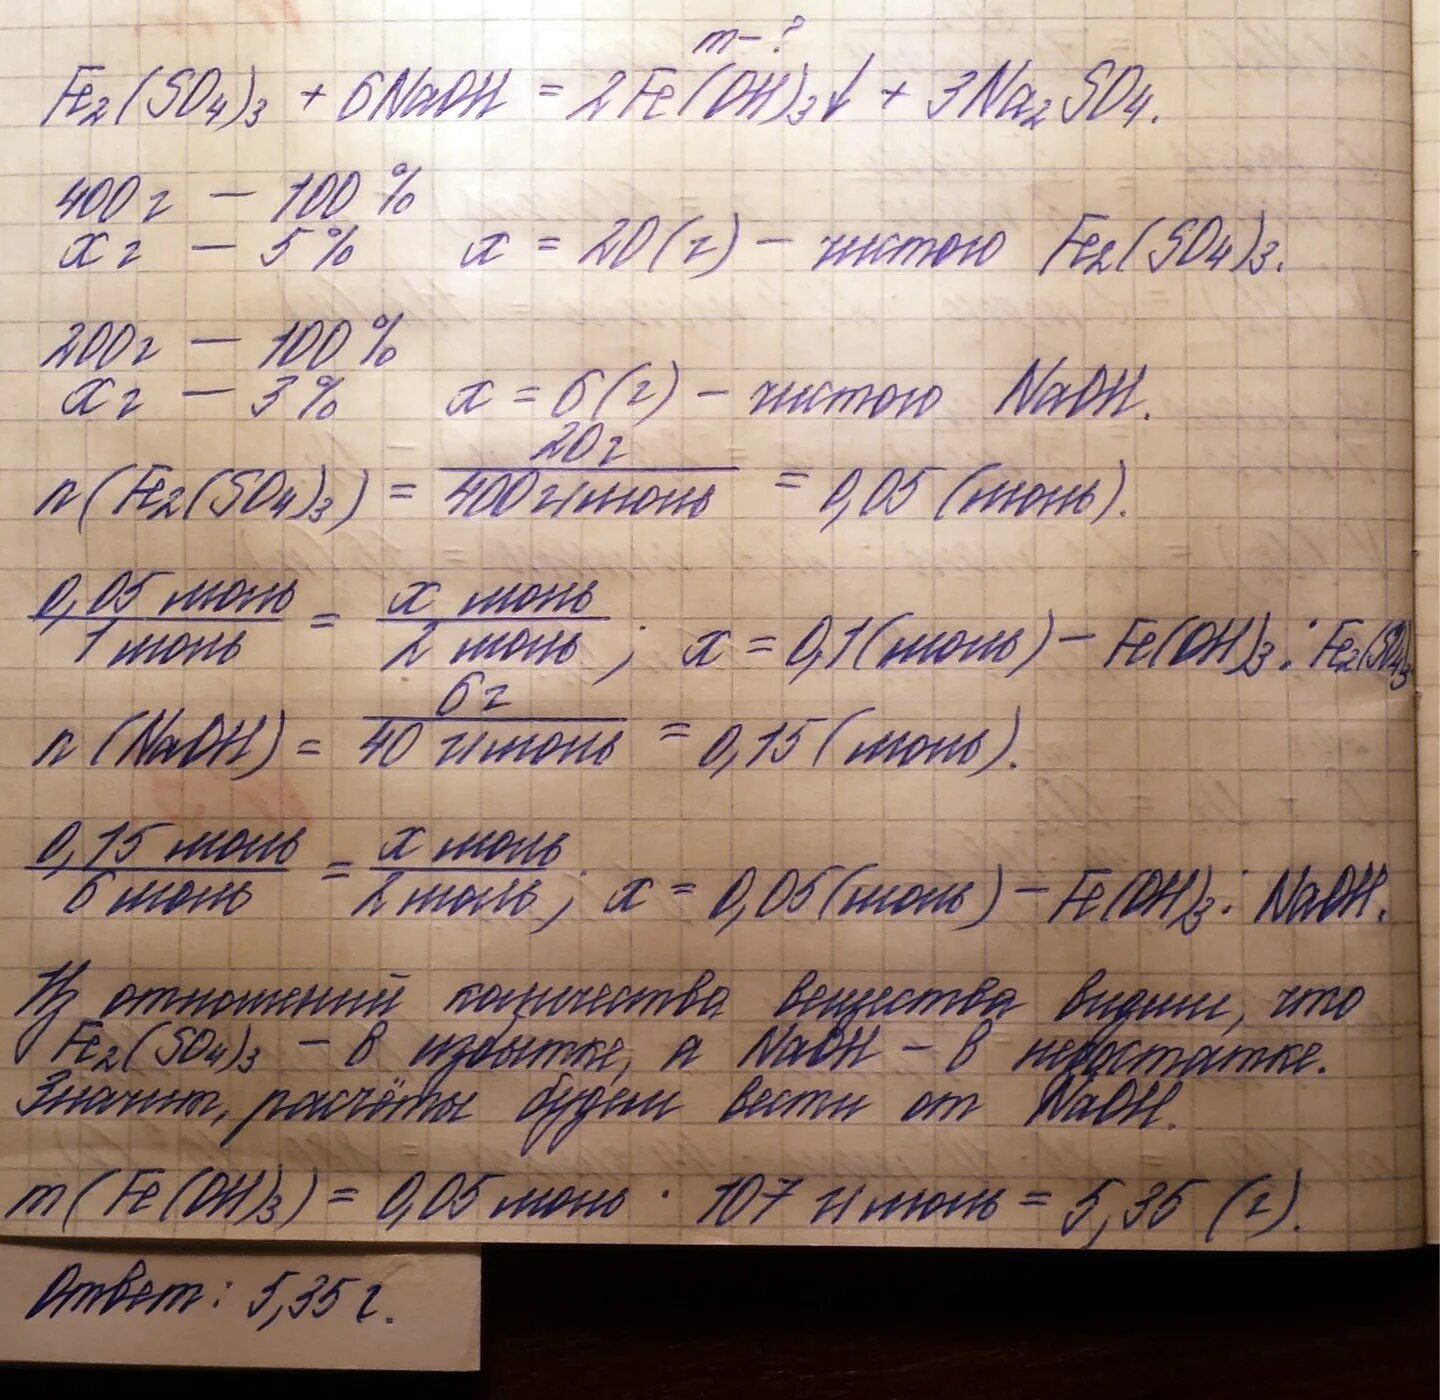 m - ?
Fe₂(SO₄)₃ + 6NaOH = 2Fe(OH)₃↓ + 3Na₂SO₄.
400 г — 100 %
x г — 5 % x = 20 (г) — чистого Fe₂(SO₄)₃.
200 г — 100 %
x г — 3 % x = 6 (г) — чистого NaOH.
n(Fe₂(SO₄)₃) = 20 г / 400 г/моль = 0,05 (моль).
0,05 моль / 1 моль = x моль / 2 моль ; x = 0,1 (моль) — Fe(OH)₃ : Fe₂(SO₄)₃
n(NaOH) = 6 г / 40 г/моль = 0,15 (моль).
0,15 моль / 6 моль = x моль / 2 моль ; x = 0,05 (моль) — Fe(OH)₃ : NaOH.
Из отношений количества вещества видим, что
Fe₂(SO₄)₃ — в избытке, а NaOH — в недостатке.
Значит, расчёты будем вести от NaOH.
m(Fe(OH)₃) = 0,05 моль · 107 г/моль = 5,35 (г).
Ответ: 5,35 г.